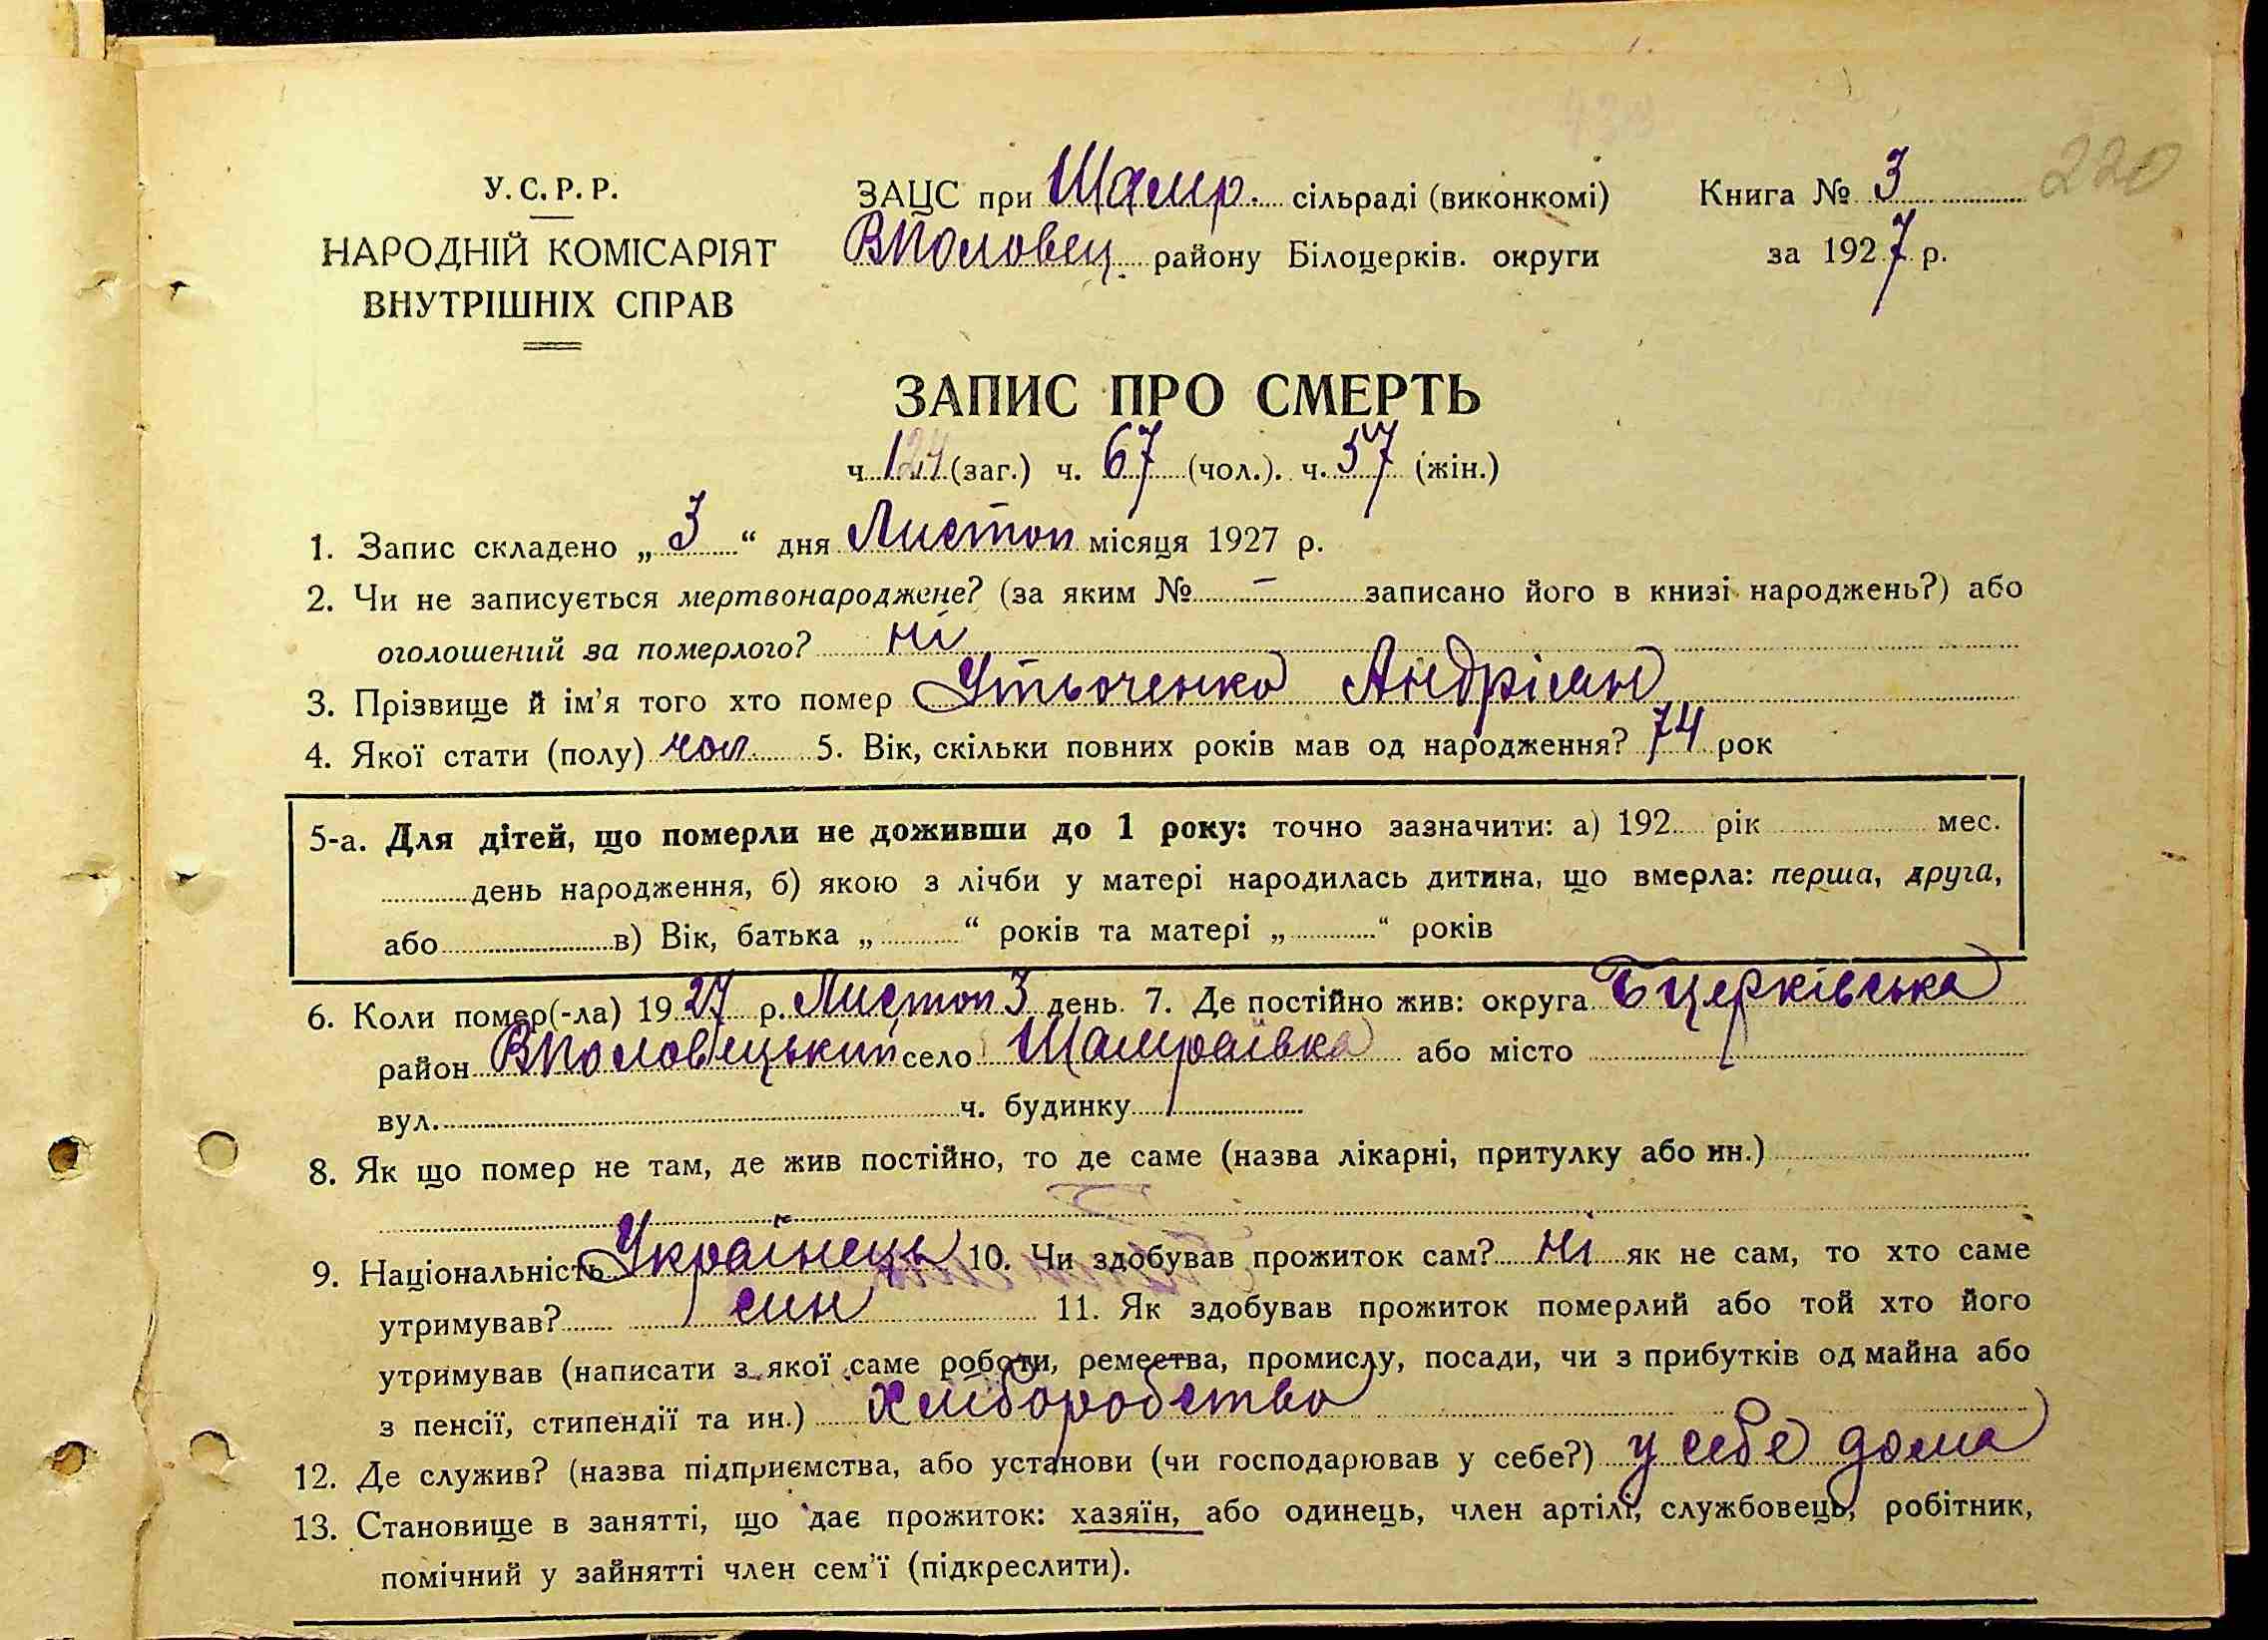 220
У.С.Р.Р.
НАРОДНІЙ КОМІСАРІЯТ
ВНУТРІШНІХ СПРАВ
ЗАЦС при Шамр. сільраді (виконкомі)
ВПоловец. району Білоцерків. округи
Книга № 3
за 1927 р.
ЗАПИС ПРО СМЕРТЬ
ч. 124 (заг.) ч. 67 (чол.). ч. 57 (жін.)
1. Запис складено „ 3 “ дня Листоп місяця 1927 р.
2. Чи не записується мертвонароджене? (за яким № — записано його в книзі народжень?) або
оголошений за померлого? ні
3. Прізвище й ім'я того хто помер Утьоченко Андріян
4. Якої стати (полу) чол 5. Вік, скільки повних років мав од народження? 74 рок
5-а. Для дітей, що померли не доживши до 1 року: точно зазначити: а) 192 рік мес.
день народження, б) якою з лічби у матері народилась дитина, що вмерла: перша, друга,
або в) Вік, батька „ “ років та матері „ “ років
6. Коли помер(-ла) 1927 р. Листоп 3 день. 7. Де постійно жив: округа Бцерківська
район ВПоловецький село Шамраївка або місто
вул. ч. будинку
8. Як що помер не там, де жив постійно, то де саме (назва лікарні, притулку або ин.)
9. Національність Українець 10. Чи здобував прожиток сам? Ні як не сам, то хто саме
утримував? син 11. Як здобував прожиток померлий або той хто його
утримував (написати з якої саме роботи, ремества, промислу, посади, чи з прибутків од майна або
з пенсії, стипендії та ин.) Хліборобство
12. Де служив? (назва підприємства, або установи (чи господарював у себе?) у себе дома
13. Становище в занятті, що дає прожиток: хазяїн, або одинець, член артілі, службовець, робітник,
помічний у зайнятті член сем'ї (підкреслити).